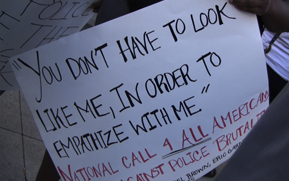 YOU DON'T HAVE TO LOOK
LIKE ME, IN ORDER TO
EMPATHIZE WITH ME"
NATIONAL CALL 4 ALL AMERICANS
AGAINST POLICE BRUTALITY
BROWN, ERIC